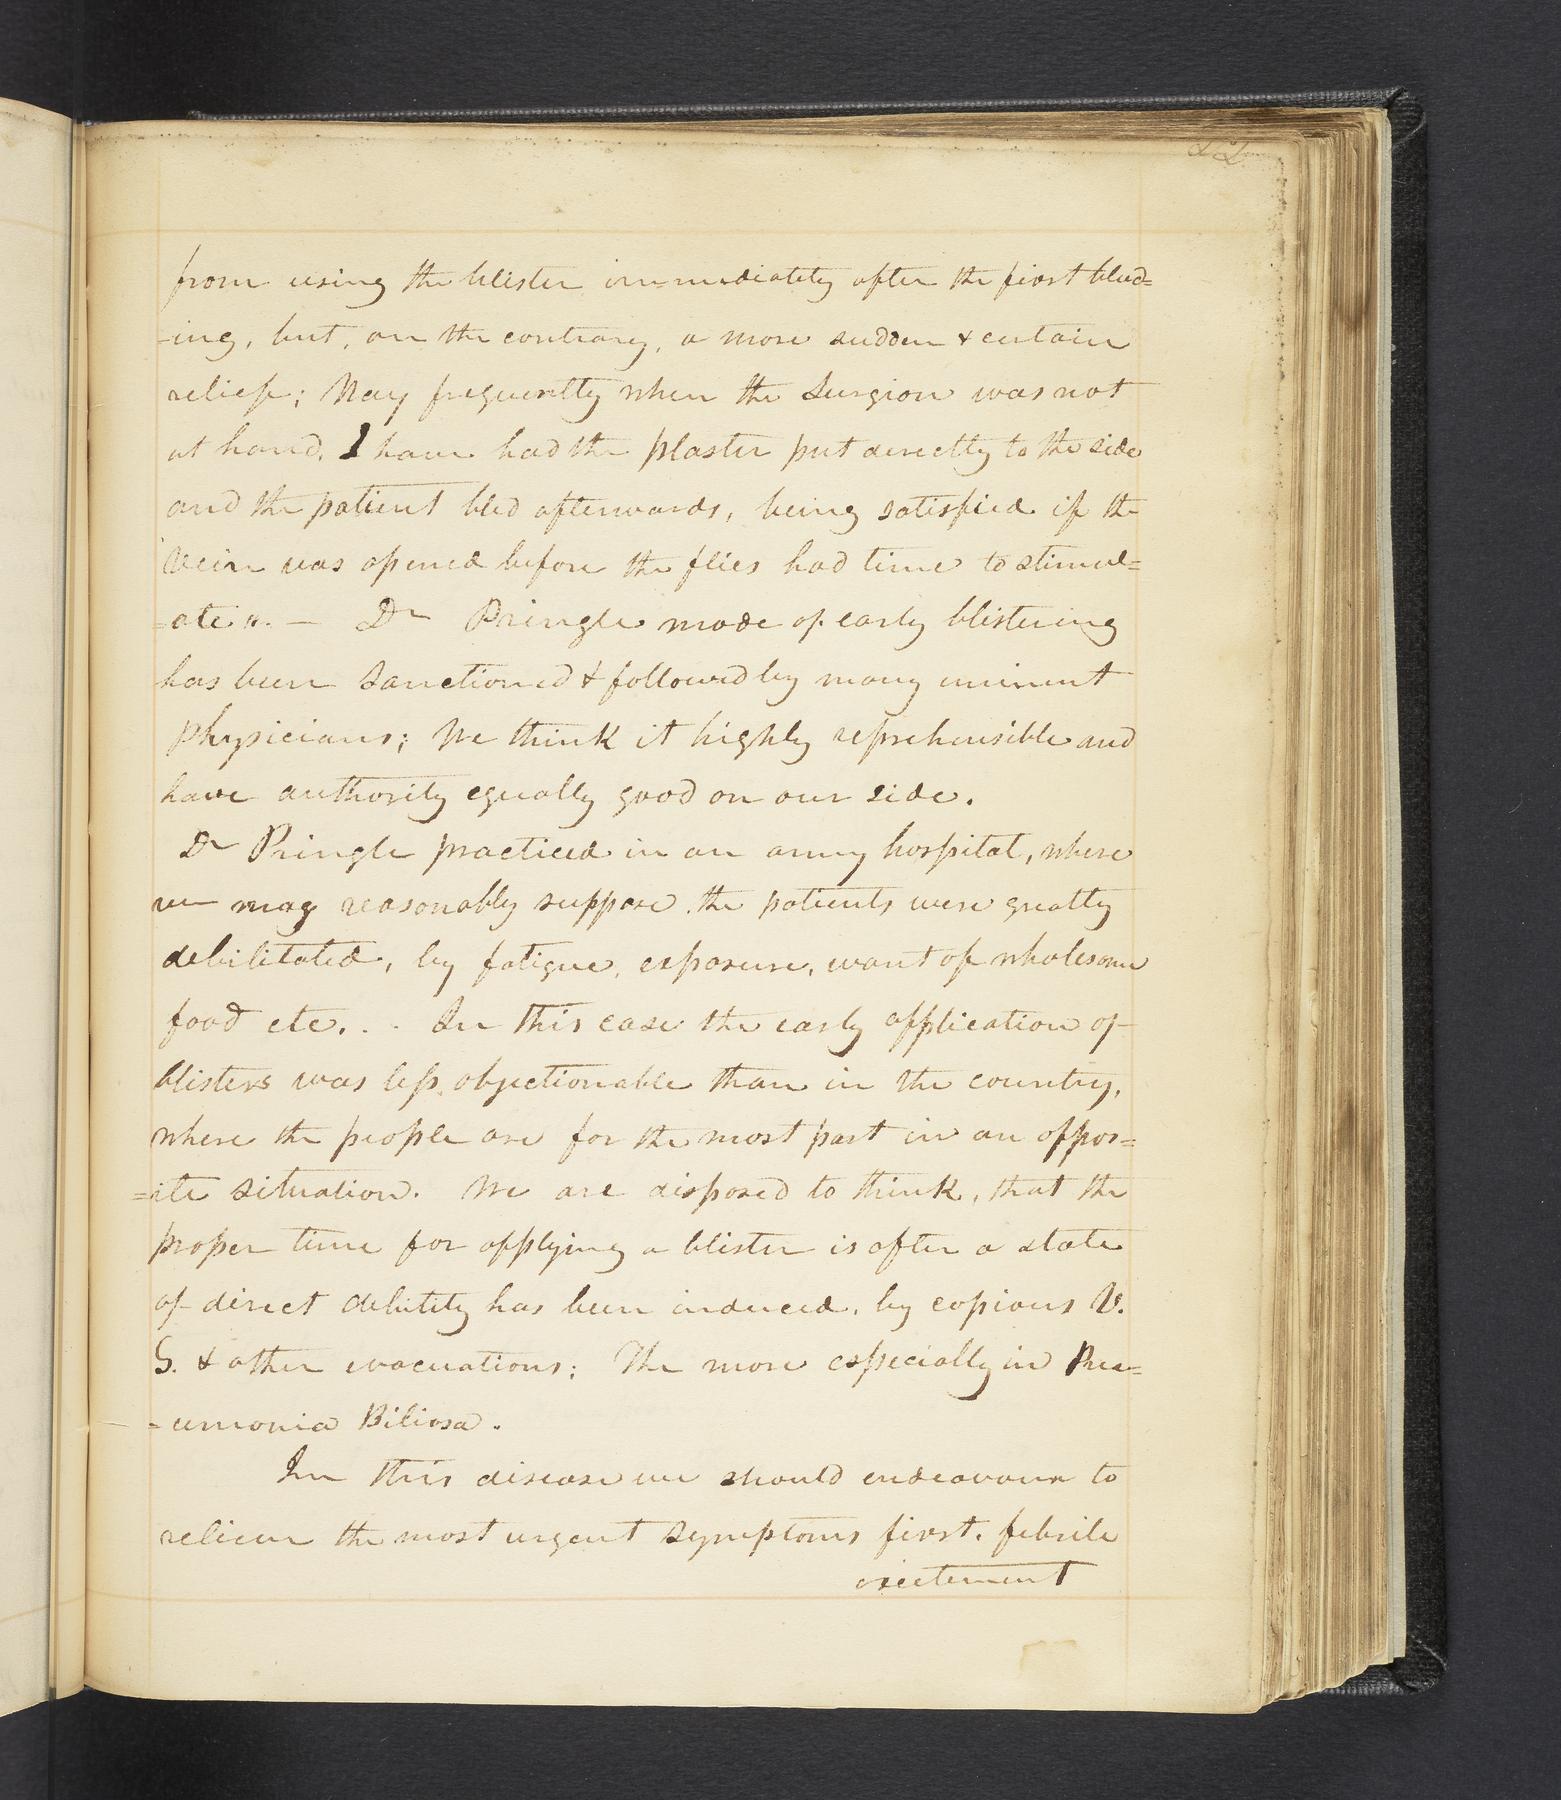 22
from using the blister immediately after the first bleed=
-ing, but, on the contrary, a more sudden & certain
relief; Nay frequently when the Surgion was not
at hand, I have had the plaster put directly to the side
and the patient bled afterwards, being satisfied if the
Vein was opened before the flies had time to stimul=
=ate ". — Dr Pringle mode of early blistering
has been sanctioned & followed by many eminent
physicians; We think it highly reprehensible and
have authority equally good on our side.
Dr Pringle practiced in an army hospital, where
we may reasonably suppose the patients were greatly
debilitated, by fatigue, exposure, want of wholesome
food etc. . . In this case the early application of
blisters was less objectionable than in the country,
where the people are for the most part in an oppos=
=ite situation. We are disposed to think, that the
proper time for applying a blister is after a state
of direct debility has been induced, by copious V.
S. & other evacuations; The more especially in Pne=
=umonia Biliosa.
In this disease we should endeavour to
relieve the most urgent symptoms first. febrile
excitement